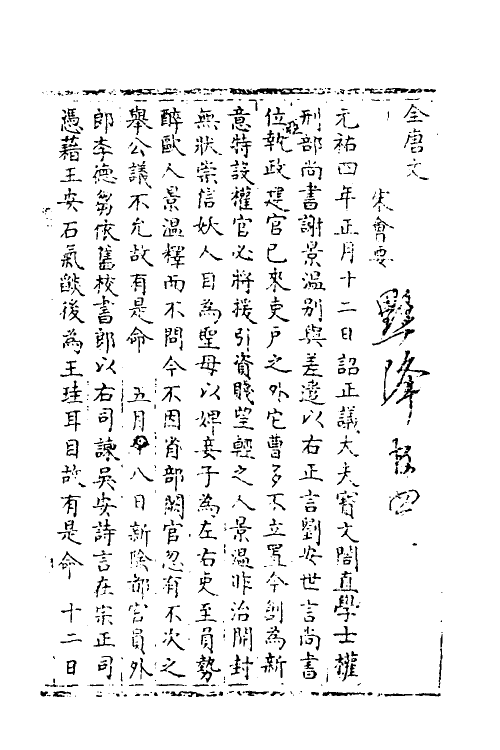 全唐文
宋會要
黜降 四
元祐四年正月十二日詔正議大夫寶文閣直學士權
刑部尚書謝景溫別與差遣以右正言劉安世言尚書
位亞執政建官已來吏戶之外它曹多不立置今創為新
意特設權官必將援引資賤望輕之人景溫昨治開封
無狀崇信妖人目為聖母以婢妾子為左右吏至員勢
醉歐人景溫釋而不問今不因省部闕官忽有不次之
舉公議不允故有是命 五月八日新除都官員外
郎李德芻依舊校書郎以右司諫吳安詩言在宗正司
憑藉王安石氣燄後為王珪耳目故有是命 十二日